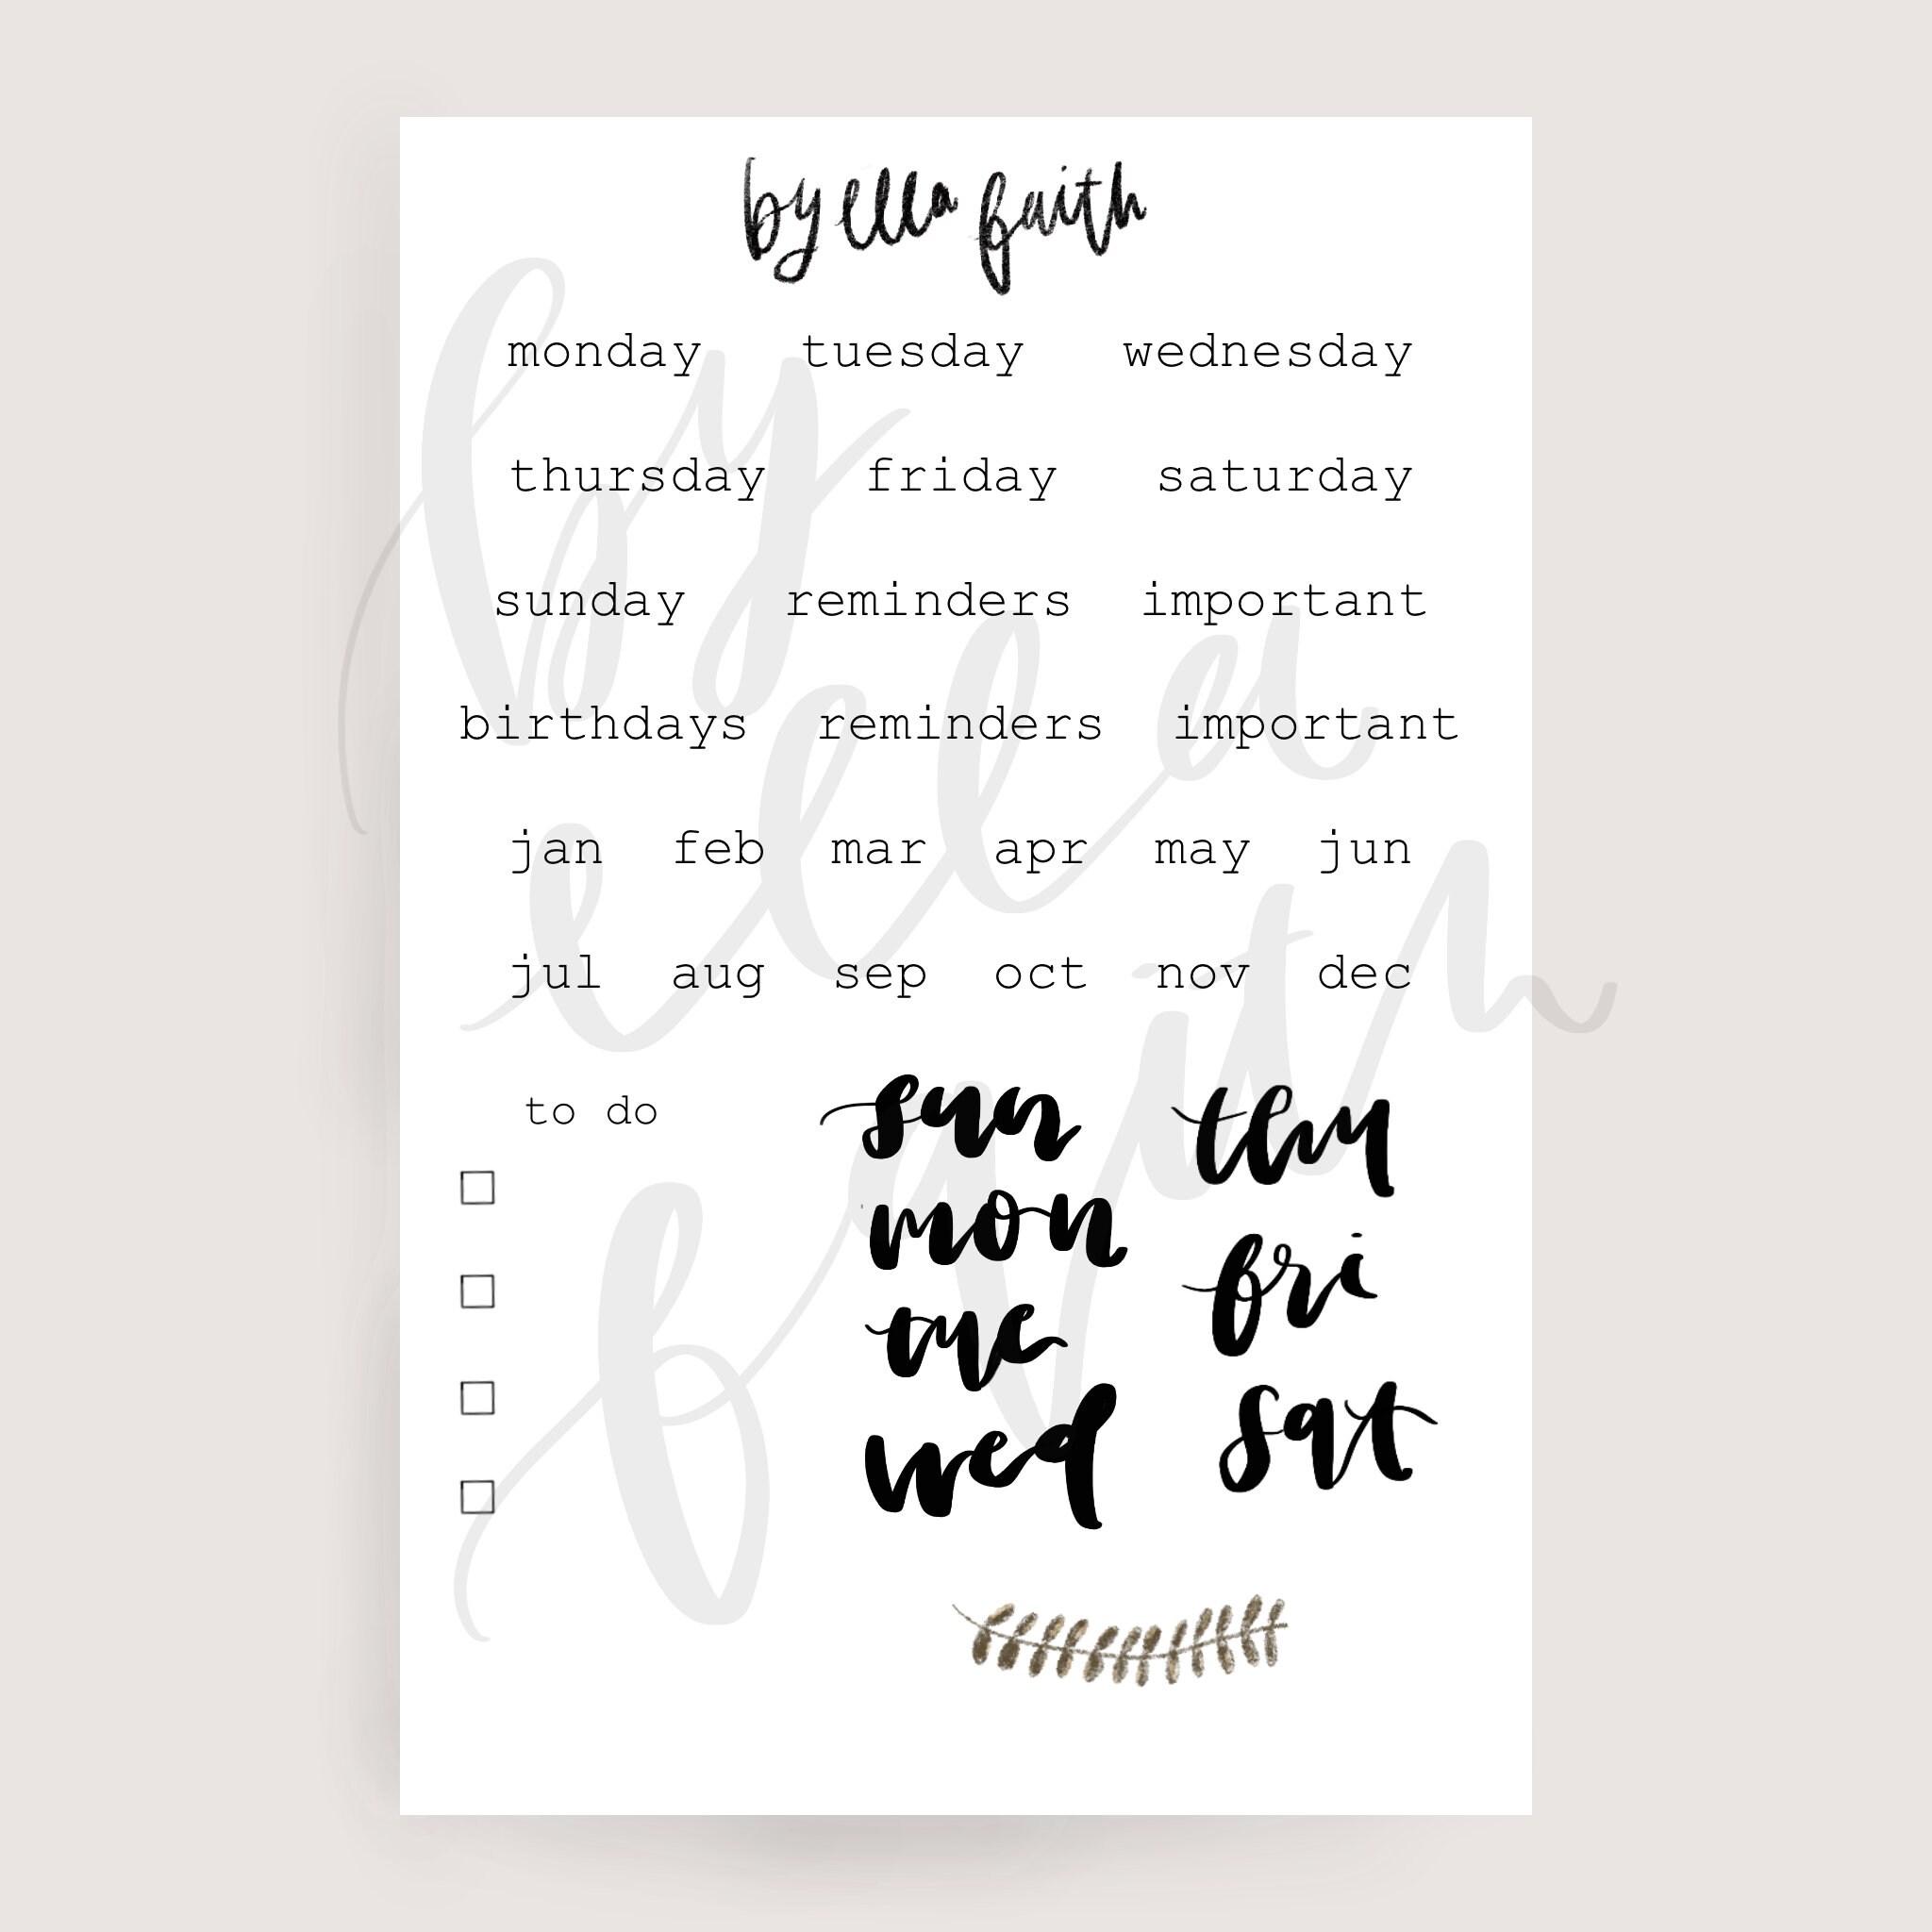 by ella faith
monday tuesday wednesday
thursday friday saturday
sunday reminders important
birthdays reminders important
jan feb mar apr may jun
jul aug sep oct nov dec
to do
sun
mon
tue
wed
thu
fri
sat
by
ella
faith